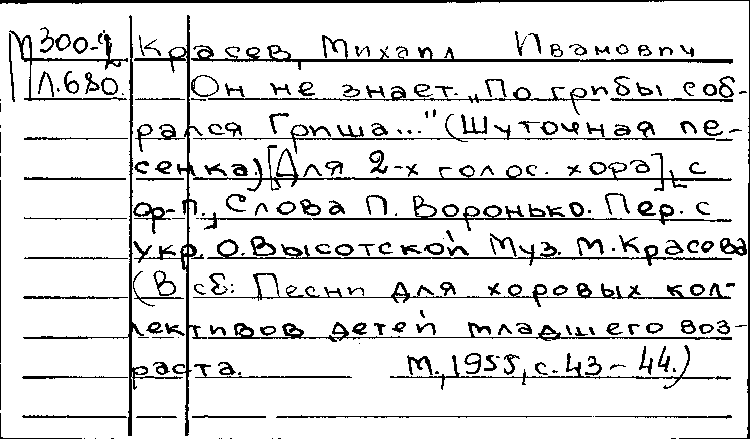 М300-2 Красев, Михаил Иванович
Л.680. Он не знает. „По грибы соб-
рался Гриша..." (Шуточная пе-
сенка) [Для 2-х голос. хора], с
ф-п., Слова П. Воронько. Пер. с
укр. О. Высотской Муз. М. Красева
(В сб: Песни для хоровых кол-
лективов детей младшего воз-
раста. М., 1955, с. 43-44.)